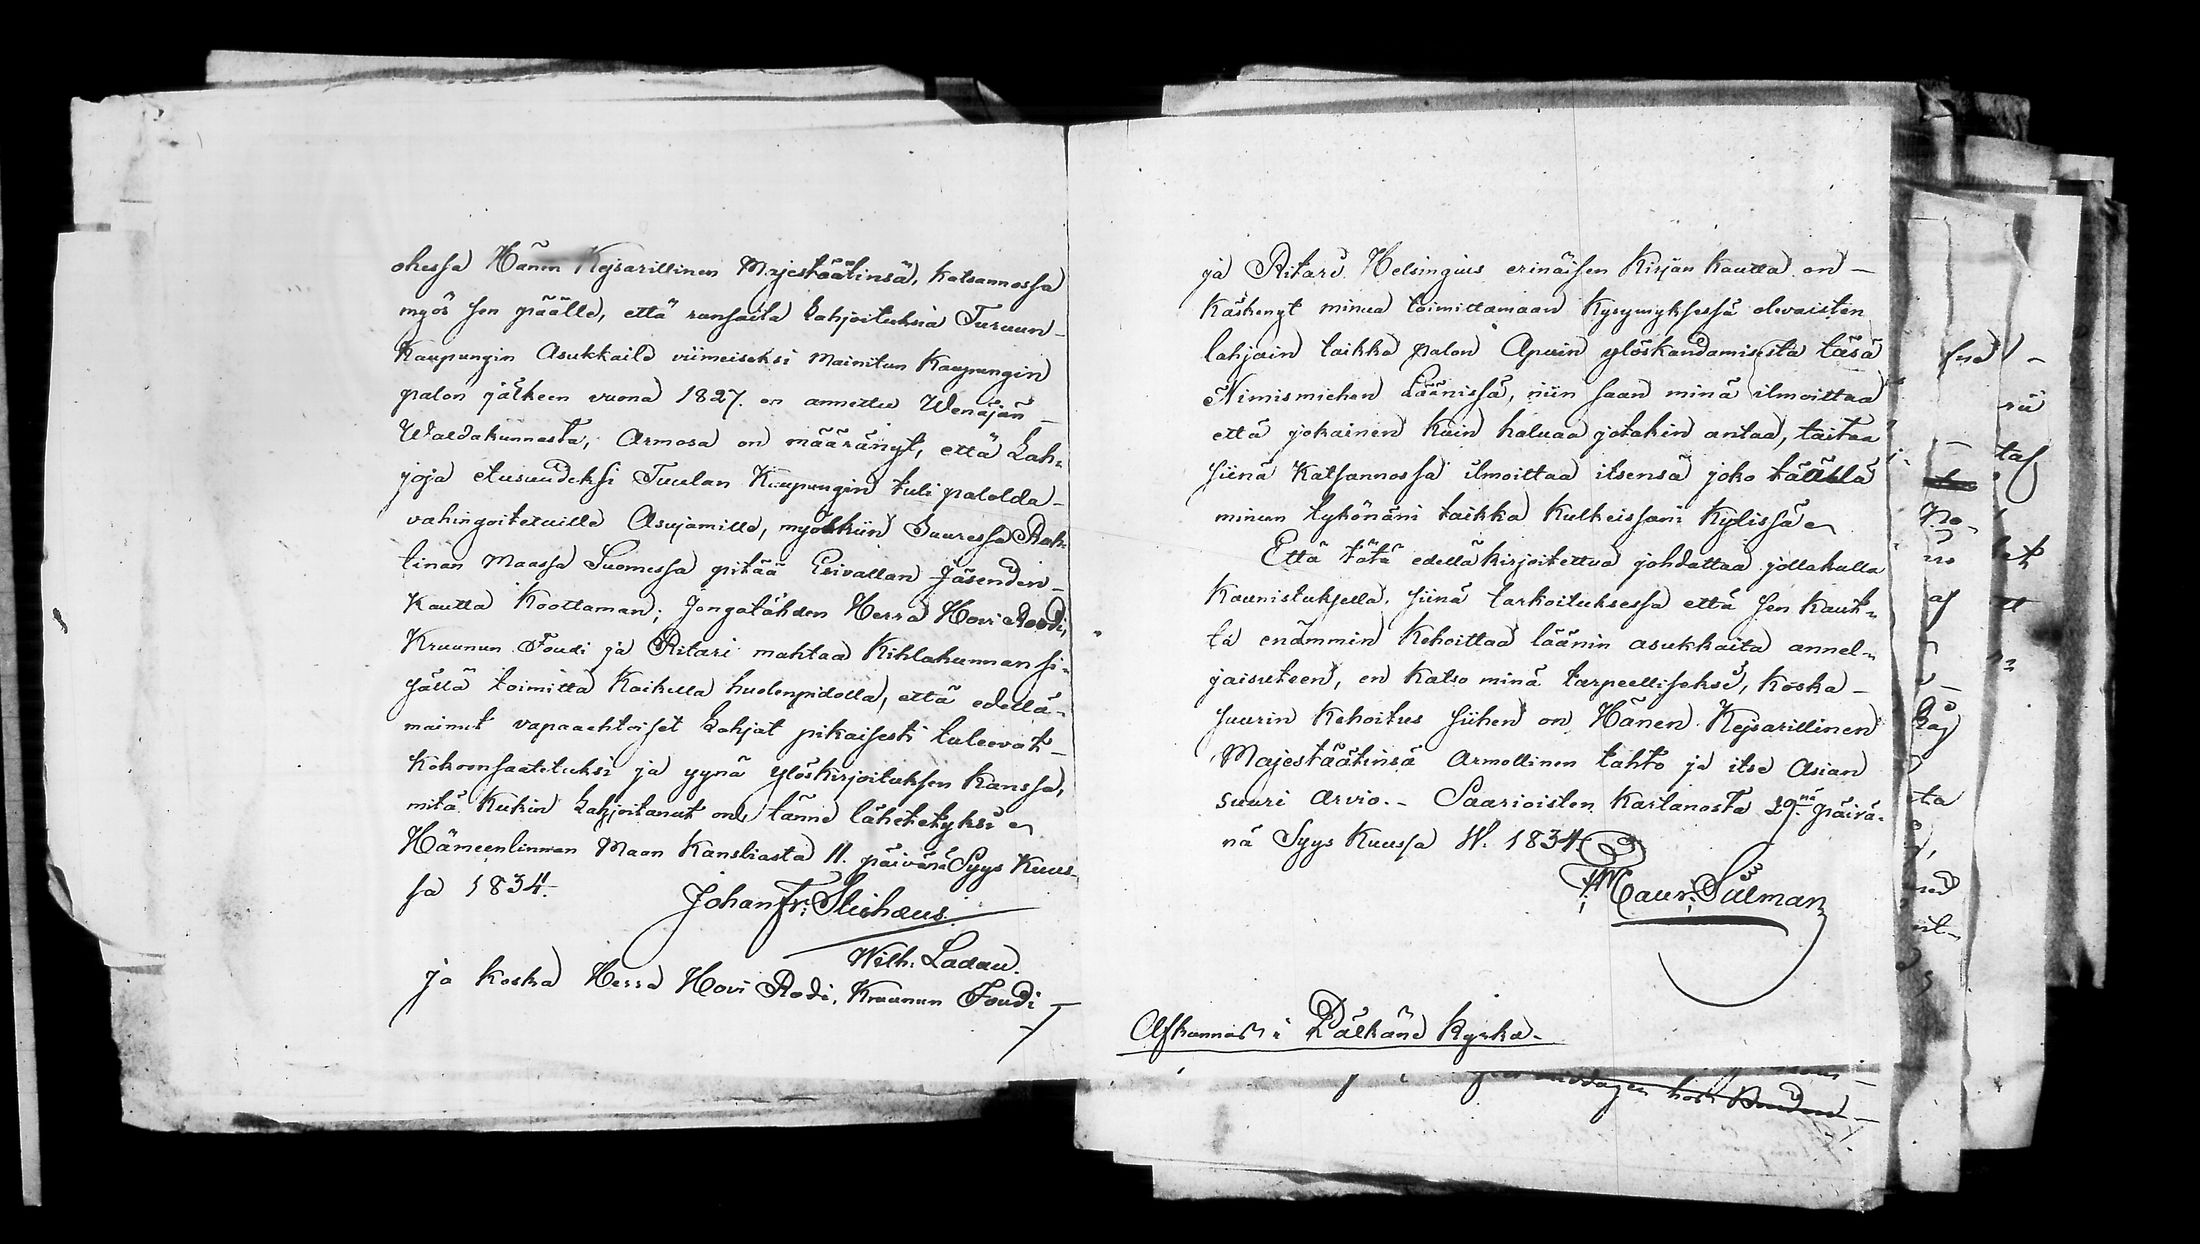 okessa Hänen Kejsarillinen Majestäätinsä, katsannossa
myös sen päälle, että runsaita Lahjoituksia Turuun-
Kaupungin Asukkaild viimeiseksi mainitun Kaupungin
palon jälkeen vuona 1827. on annettu Wenäjän-
Waldakunnasta, Armosa on määrängt, että Lah-
joja etusuudeksi Tuulan Kaupungin tuli palolda-
vahingoitetuille Asujamille, myökkiin Suuressa Ruh-
tinan Maassa Suomessa pitää Esivallan Jäsenden-
Kautta Koottaman; Jongatähden Herra Hovi Rodi,
Kruunun Foudi ja Ritari mahtaa Kihlakunnan si-
sällä toimitta Kaikella huolenpidolla, että edellä-
mainut vapaachtoiset Lahjat pikaisesti tuleevat-
Kokoonsaatetuksi ja yynä ylöskirjoituksen Kanssa,
mitä Kukin Lahjoitanut on, tänne lähetetyksi
Hämeenlinnan Maan Kansliasta 11. päivänä Syys Kuus-
sa 1834.-
Johan Fr: Stichæus.
Wilh. Ladau.
Ja koska Herra Hovi Rodi, Kruunun Foudi
ja Ritari Helsingius erinäisen Kirjan kautta on-
Käskenyt minua toimittamaan Kysymyksessä olevaisten
lahjain taikka palon Apuin ylöskandamisesta täsä
Nimismiehen Läänissä, niin saan minä ilmoittaa
että jokainen kuin haluaa jotakin antaa, taitaa
siinä Katsannossa ilmoittaa itsensä joko täällä
minun tykönäni taikka Kulkeissani Kylissä
Että tätä edelläkirjoitettua johdattaa jollakulla
Kaunistuksella, siinä tarkoituksessa että sen kaut-
ta enämmin Kehoittaa läänin asukkaita annel-
jaisuteen, en katso minä tarpeelliseksi, koska-
suurin Kehoitus siihen on Hänen Kejsarillinen
Majestäätinsä Armollinen tahto ja itse Asian
suuri arvio.- Saarioisten Kartanosta 29.nä päivä-
nä Syys Kuussa W. 1834.
Maur: Silman
Afkunnat i Pälkäne Kyrka-